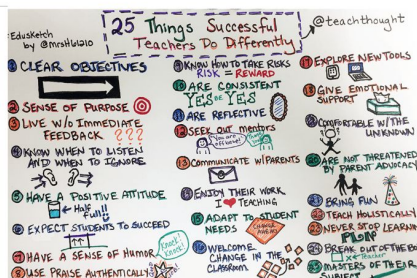 Edusketch
by @mrsH61210
25 Things Successful
Teachers Do Differently
@teachthought
1 CLEAR OBJECTIVES
2 SENSE OF PURPOSE
3 LIVE W/O IMMEDIATE
FEEDBACK ???
4 KNOW WHEN TO LISTEN
AND WHEN TO IGNORE
5 HAVE A POSITIVE ATTITUDE
Half
Full!!
6 EXPECT STUDENTS TO SUCCEED
7 HAVE A SENSE OF HUMOR
Knock!
Knock!
8 USE PRAISE AUTHENTICALLY
9 KNOW HOW TO TAKE RISKS
RISK = REWARD
10 ARE CONSISTENT
YES BE YES
11 ARE REFLECTIVE
12 SEEK OUT mentors
13 COMMUNICATE W/PARENTS
15 ENJOY THEIR WORK
I TEACHING
ADAPT TO STUDENT
NEEDS
CHANGE
AHEAD
16 WELCOME
CHANGE IN THE
CLASSROOM
17 EXPLORE NEW TOOLS
18 GIVE EMOTIONAL
SUPPORT
COMFORTABLE W/THE
UNKNOWN
20 ARE NOT THREATENED
BY PARENT ADVOCACY
21 BRING FUN
22 TEACH HOLISTICALLY
23 NEVER STOP LEARNING
24 BREAK OUT OF THE BOX
Teacher
25 MASTERS OF THEIR